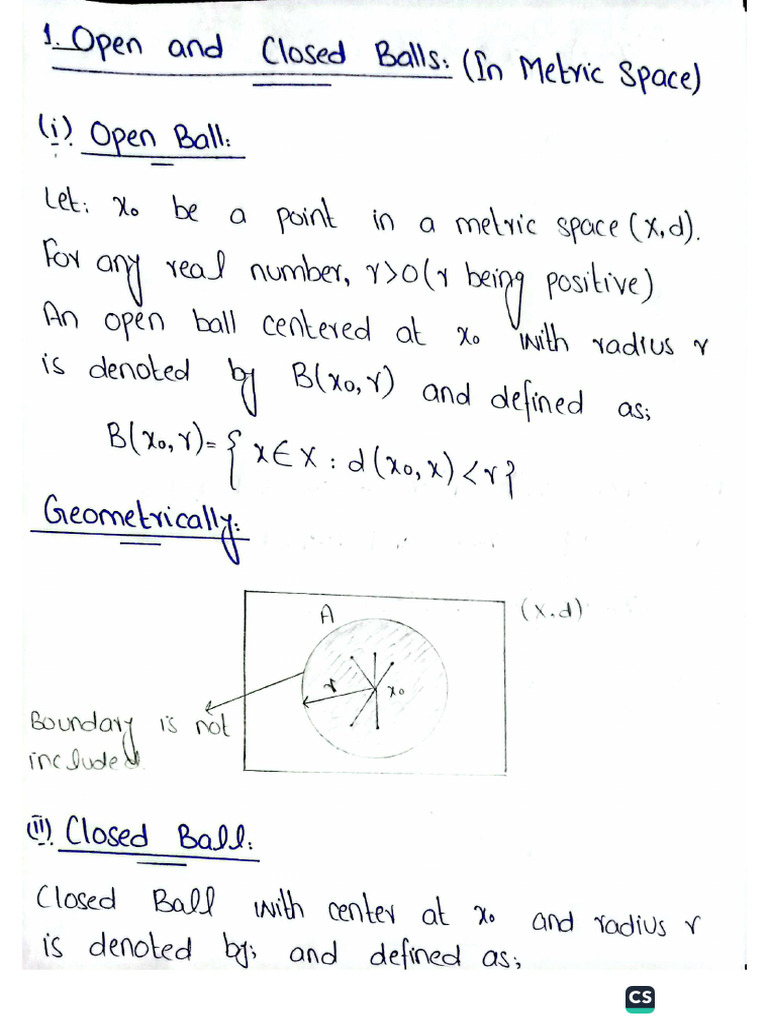 1. Open and Closed Balls: (In Metric Space)
(i). Open Ball:
Let: x₀ be a point in a metric space (X,d).
For any real number, r>0 (r being positive)
An open ball centered at x₀ with radius r
is denoted by B(x₀,r) and defined as;
B(x₀,r)= { x∈X : d(x₀,x) <r}
Geometrically:
A
(X.d)
r
x₀
Boundary is not
included
(ii). Closed Ball:
Closed Ball with center at x₀ and radius r
is denoted by; and defined as;
CS